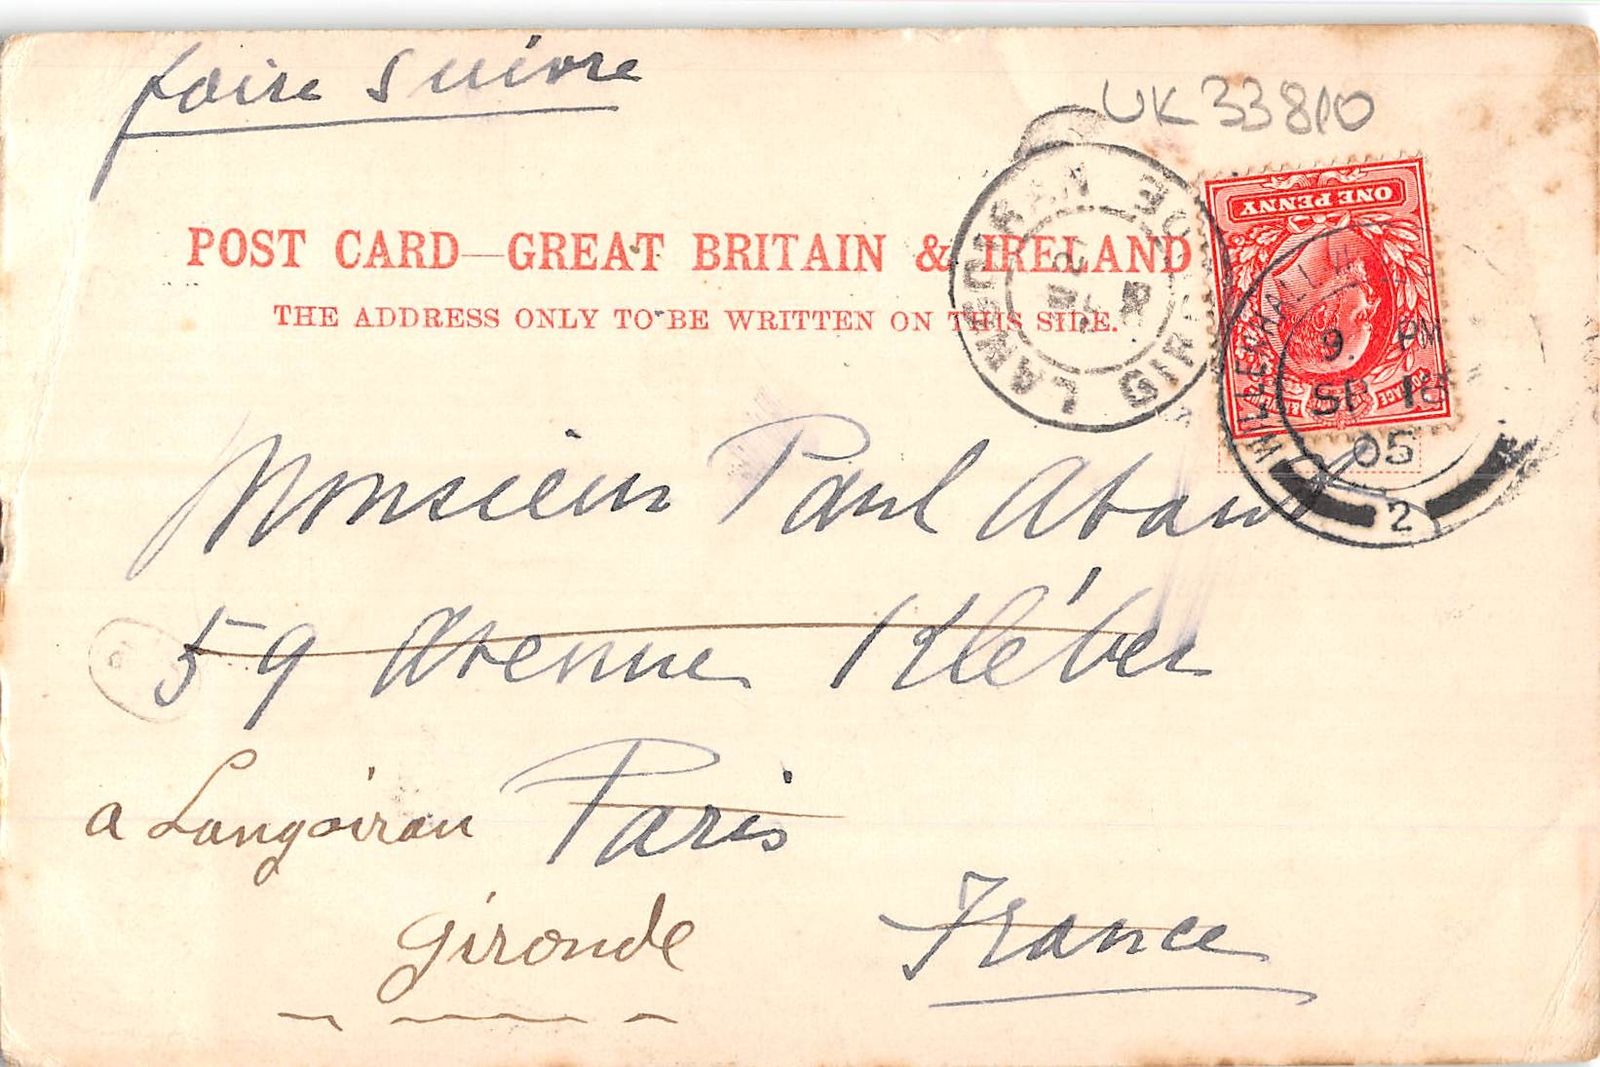 faire suivre
UK 33810
ONE PENNY
POST CARD—GREAT BRITAIN & IRELAND
THE ADDRESS ONLY TO BE WRITTEN ON THIS SIDE.
LANGOIRAN GIRONDE
WILLENHALL
9. PM
SP 18
05
2
Monsieur Paul
59 Avenue Kléber
a Langoiran Paris
Gironde France